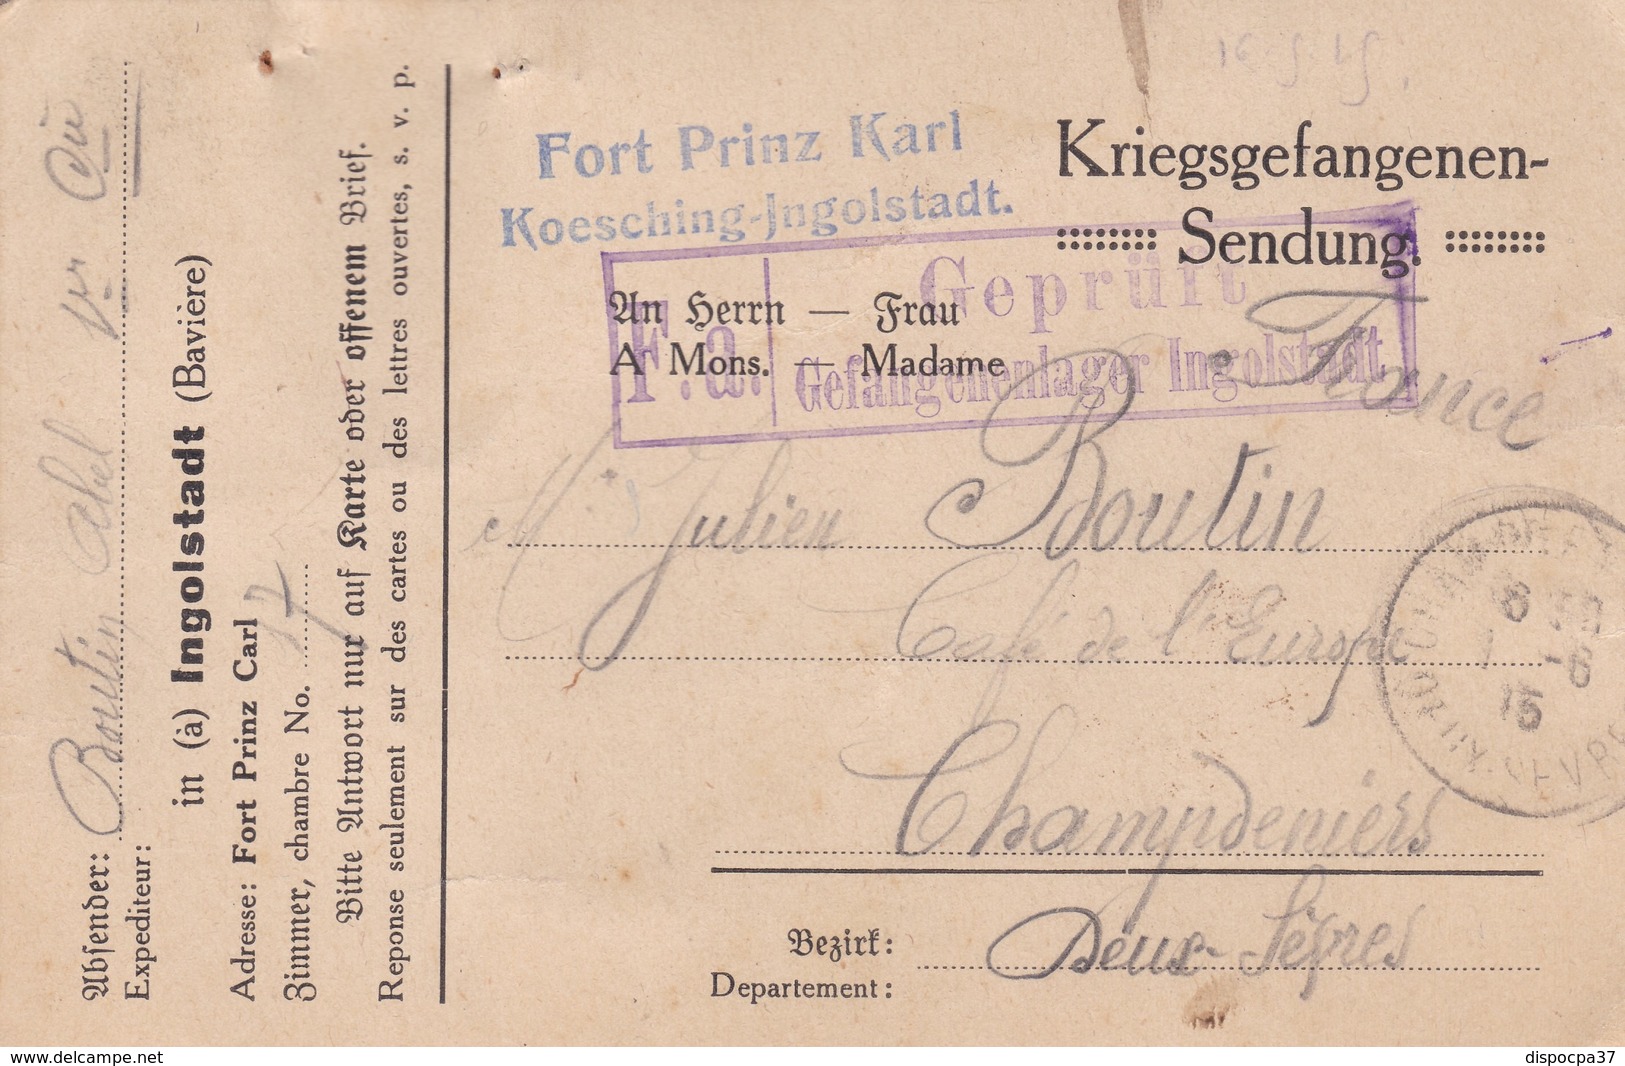 16.5.15
Fort Prinz Karl
Koesching-Ingolstadt.
Kriegsgefangenen-
Sendung.
F.a.
Geprüft
Gefangenenlager Ingolstadt
An Herrn — Frau
A Mons. — Madame
France
M. Julien Boutin
Café de l'Europe
Champdeniers
Bezirk:
Departement:
Deux-Sèvres
6
1 -6
15
Absender:
Expediteur:
Boutin Abel
in (à) Ingolstadt (Bavière)
Adresse: Fort Prinz Carl
Zimmer, chambre No. 17
Bitte Antwort nur auf Karte oder offenem Brief.
Reponse seulement sur des cartes ou des lettres ouvertes, s. v. p.
www.delcampe.net
dispocpa37